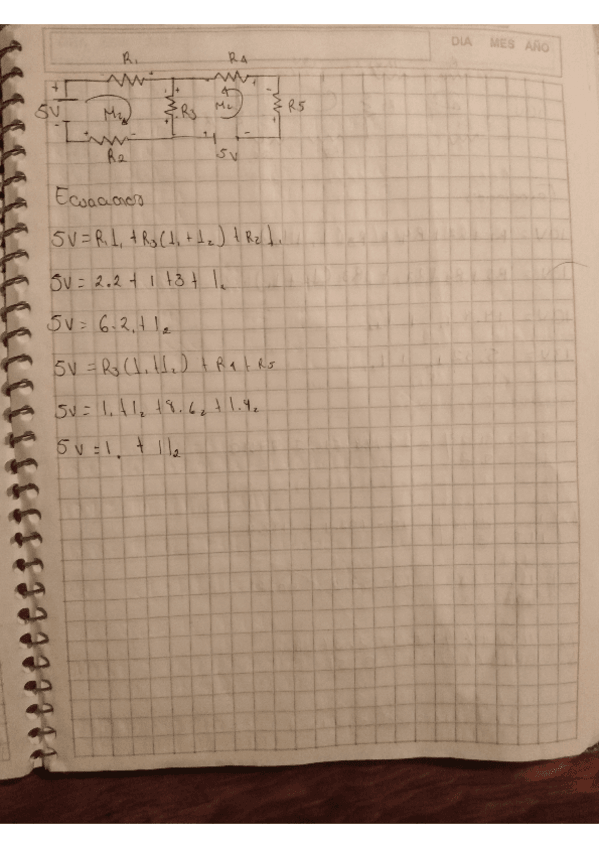 DIA MES AÑO
R1 R4
+ +
5V M1 R3 M2 R5
-
R2 5V
Ecuaciones
5V = R1I1 + R3(I1+I2) + R2I1
5V = 2.2 + 1 + 3 + I2
5V = 6.2 + I2
5V = R3(I1+I2) + R4 + R5
5V = I1 + I2 + 8.62 + 1.42
5V = I1 + 11 2